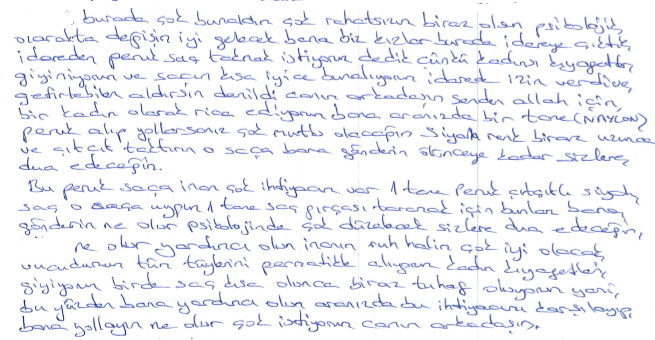 burada çok bunaldım çok rahatsızım biraz olsun psikolojik
olarakta değişim iyi gelecek bana biz kızlar burada idareye çıktık
idareden peruk saç takmak istiyoruz dedik çünkü kadınsı kıyafetler
giyiniyorum ve saçım kısa iyice bunalıyorum idarede izin verdi ve
getirtebilen aldırsın denildi canım arkadaşım senden allah için,
bir kadın olarak rica ediyorum bana aranızda bir tane (NAYLON)
peruk alıp yollarsanız çok mutlu olacağım siyah renk biraz uzunca
ve çıtçıt taktırın o saça bana gönderin ölünceye kadar sizlere,
dua edeceğim.
Bu peruk saça inan çok ihtiyacım var 1 tane peruk çıtçıtlı siyah,
saç o saça uygun 1 tane saç fırçası taramak için bunları bana,
gönderin ne olur psikolojimde çok düzelecek sizlere dua edeceğim,
ne olur yardımcı olun inanın ruh halim çok iyi olacak,
vucudumun tüm tüylerini permatikle alıyorum kadın kıyafetleri,
giyiyorum birde saç kısa olunca biraz tuhaf oluyorum yani,
bu yüzden bana yardımcı olun aranızda bu ihtiyacımı karşılayıp,
bana yollayın ne olur çok istiyorum canım arkadaşım.